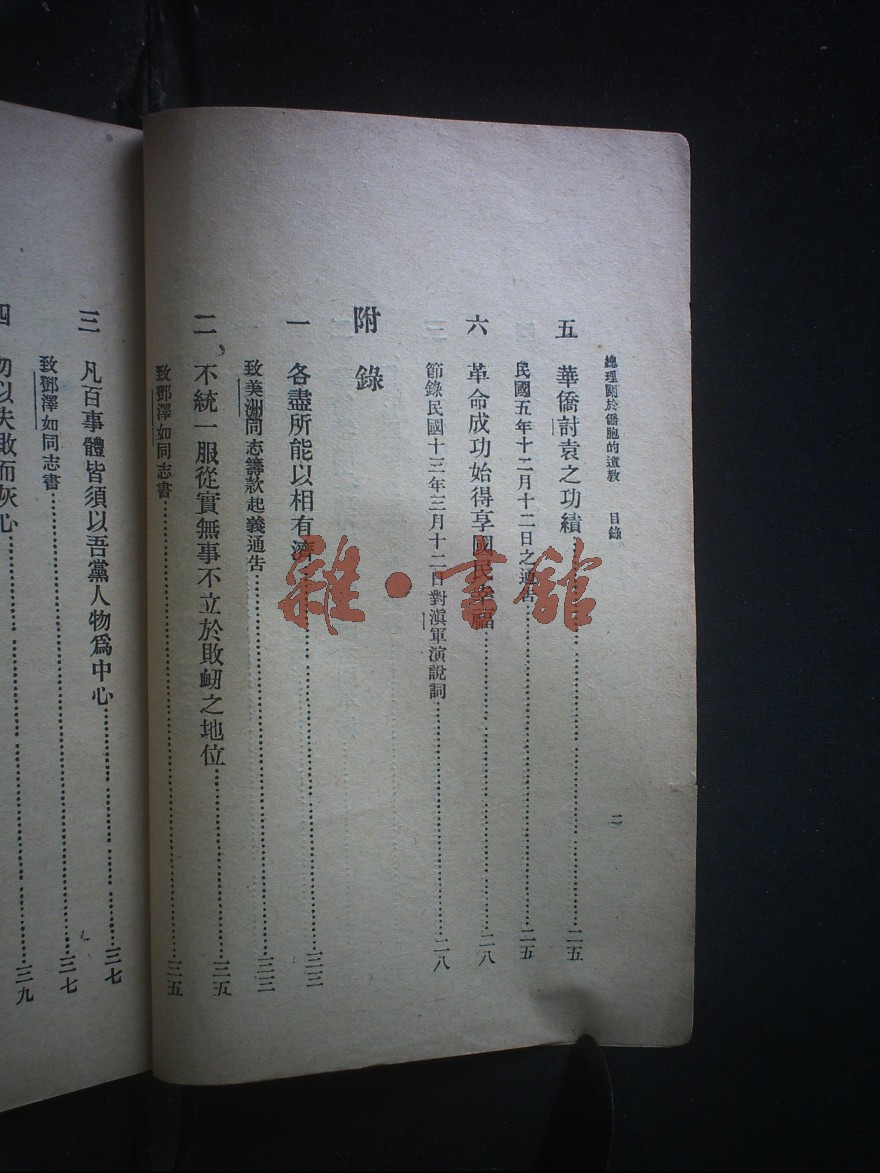 總理關於僑胞的遺教 目錄 二
五 華僑討袁之功績……二五
民國五年十二月十二日之通告……二五
六 革命成功始得享國民幸福……二八
節錄民國十三年三月十二日對滇軍演說詞……二八
附錄
一 各盡所能以相有濟……三三
致美洲同志籌款起義通告……三三
二、不統一服從實無事不立於敗衄之地位……三五
致鄧澤如同志書……三五
三 凡百事體皆須以吾黨人物爲中心……三七
致鄧澤如同志書……三七
四 勿以失敗而灰心……三九
雜·書館